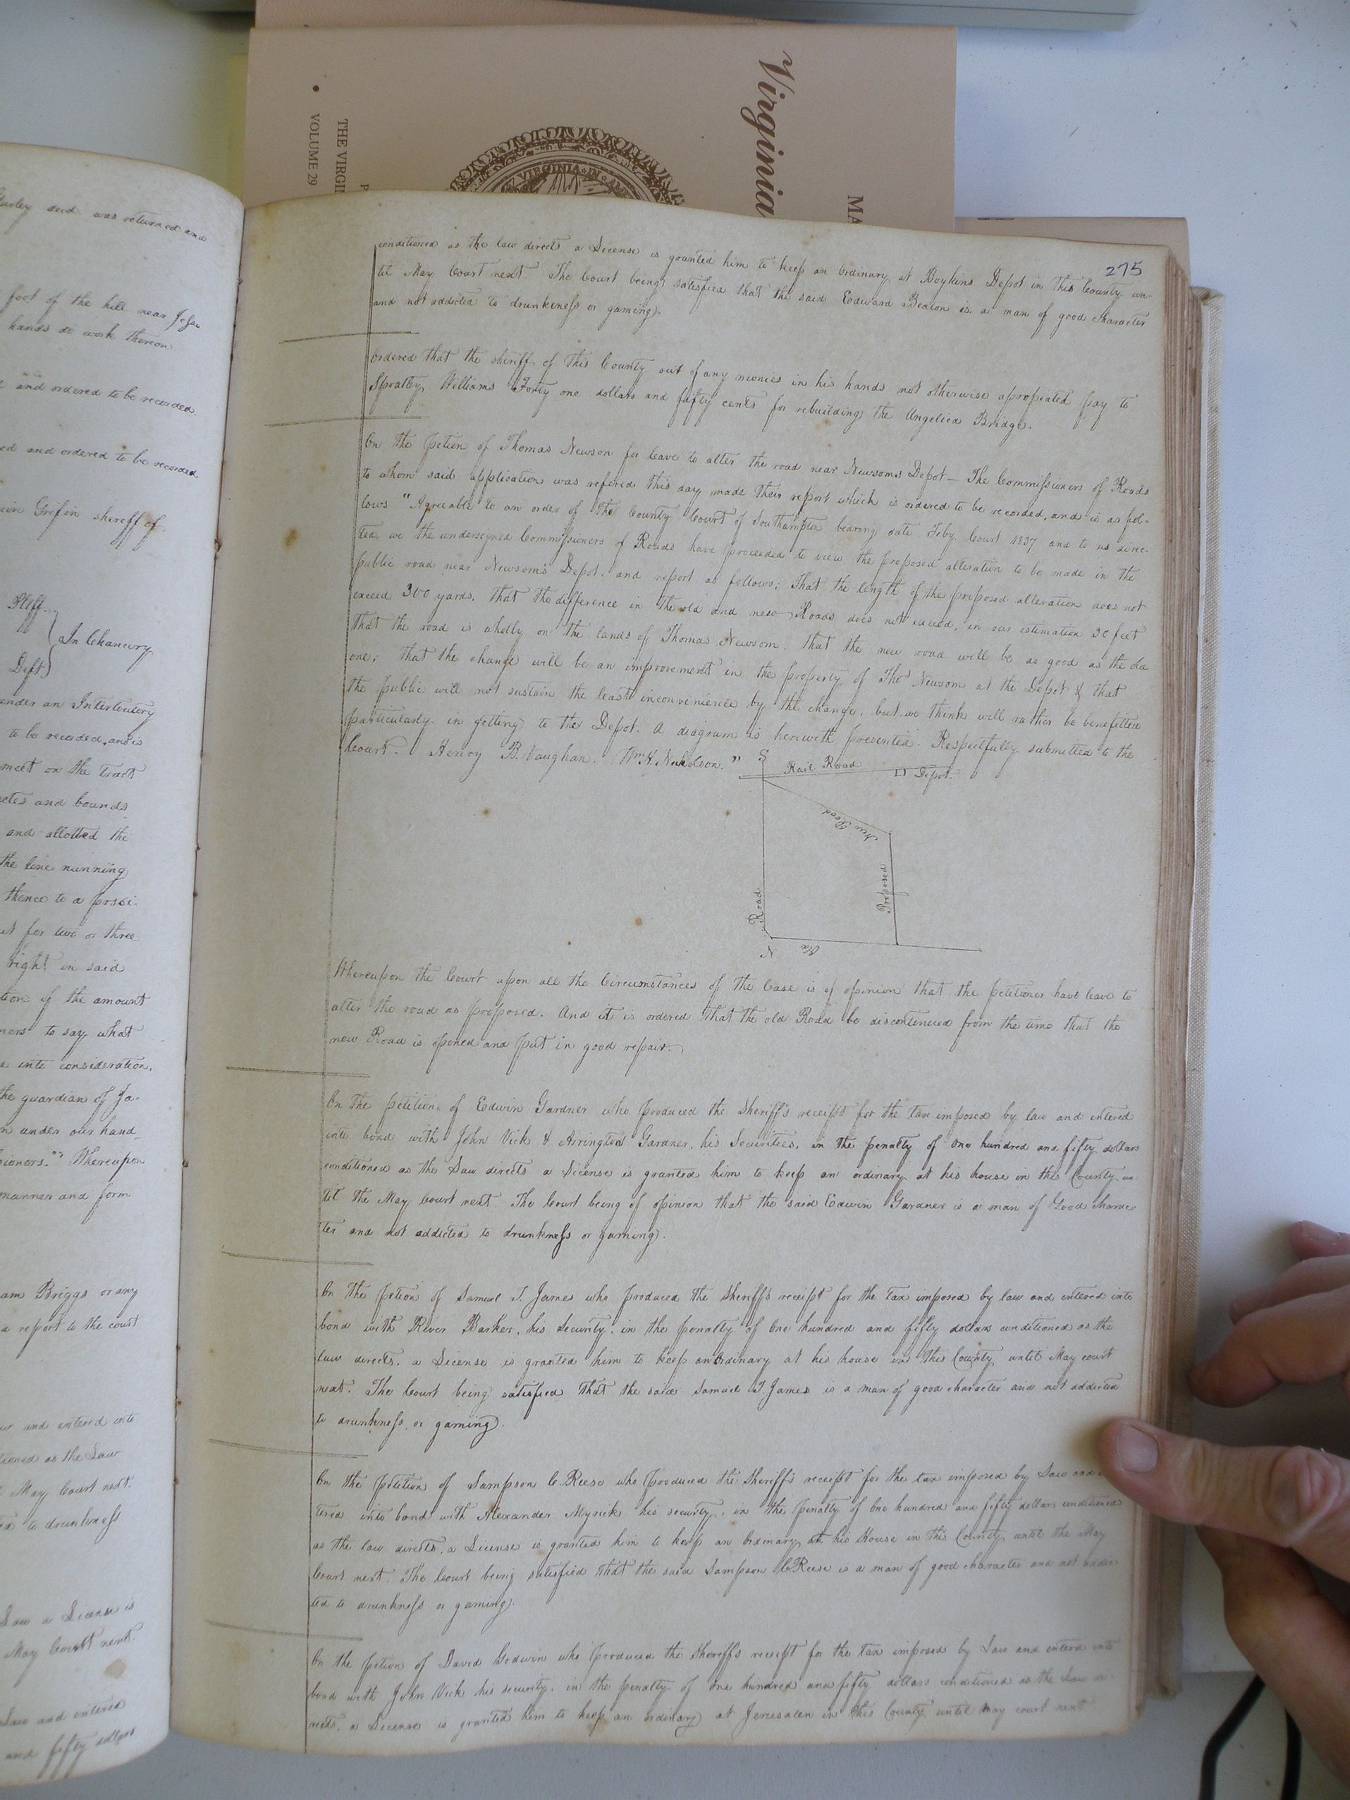 Virginia
THE VIRGIN
VOLUME 29
MA
VIRGINIA IN
Gurley and was returned and
foot of the hill near
hands do work thereon
and ordered to be recorded
ed and ordered to be recorded
Grifin sheriff of
Pltff.
In Chancery
Deft
under an Interlocutory
to be recorded, and is
meet on the tract
metes and bounds
and allotted the
the line running
thence to a possi-
for two or three
right in said
tion of the amount
to say what
into consideration,
the guardian of Ja-
under our hand,
sioners." Whereupon
manner and form
am Briggs or any
a report to the court
and entered into
tioned as the Law
May Court next.
to drunkness
Law a License is
May Court next.
Law and entered
and fifty dollars
275
conditioned as the law directs a License is granted him to keep an Ordinary at Boykins Depot in this County un-
til May Court next. The Court being satisfied that the said Edward Beaton is a man of good character
and not addicted to drunkeness or gaming.
Ordered that the sheriff of this County out of any monies in his hands not otherwise apropriated pay to
Spratley Williams Forty one dollars and fifty cents for rebuilding the Angelica Bridge.
On the petion of Thomas Newsom for leave to alter the road near Newsoms Depot— The Commissioners of Roads
to whom said application was refered this day made their report which is ordered to be recorded, and is as fol-
lows "Agreeable to an order of the County Court of Southampton bearing date Feby. Court 1837 and to us direc-
ted, we the undersigned Commissioners of Roads have proceeded to view the proposed alteration to be made in the
public road near Newsom's Depot, and report as follows; That the length of the proposed alteration does not
exceed 300 yards, that the difference in the old and new Roads does not exceed, in our estimation 30 feet
that the road is wholly on the lands of Thomas Newsom. that the new road will be as good as the old
one; that the change will be an improvement in the property of Thos Newsom at the Depot & that
the public will not sustain the least inconvenience by the change, but we think will rather be benefitted
particularly in getting to the Depot. A diagram is herewith presented. Respectfully submitted to the
Court. Henry B. Vaughan. Wm. K. Nicholson."
S
Rail Road
Depot.
New Road
Proposed
Road
N
Old
Whereupon the Court upon all the Circumstances of the Case is of opinion that the petitioner have leave to
alter the road as proposed. And it is ordered that the old Road be discontinued from the time that the
new Road is opened and put in good repair.
On the petition of Edwin Gardner who produced the Sheriff's receipt for the tax imposed by law and entered
into bond with John Vick & Arrington Gardner, his Securities, in the penalty of one hundred and fifty dollars
conditioned as the Law directs a License is granted him to keep an ordinary at his house in the County un
til the May Court next. The Court being of opinion that the said Edwin Gardner is a man of Good charac-
ter and not addicted to drunkness or gaming.
On the petion of Samuel T. James who produced the Sheriffs receipt for the tax imposed by law and entered into
bond with River Barker, his Security, in the penalty of One hundred and fifty dollars conditioned as the
law directs, a License is granted him to keep an Ordinary at his house in this County, until May court
next. The Court being satisfied that the said Samuel T James is a man of good character and not addicted
to drunkness or gaming.
On the petition of Sampson C. Reese who produced the Sheriff's receipt for the tax imposed by Law and
tered into bond with Alexander Myrick his security, in the penalty of One hundred and fifty dollars conditioned
as the law directs, a License is granted him to keep an Ordinary at his House in this County, until the May
Court next. The Court being satisfied that the said Sampson C Reese is a man of good character and not addic-
ted to drunkness or gaming.
On the petion of David Godwin who produced the Sheriffs receipt for the tax imposed by Law and entered into
bond with John Vick his security, in the penalty of one hundred and fifty dollars conditioned as the Law
rects, a License is granted him to keep an ordinary at Jerusalem in this County until May court next